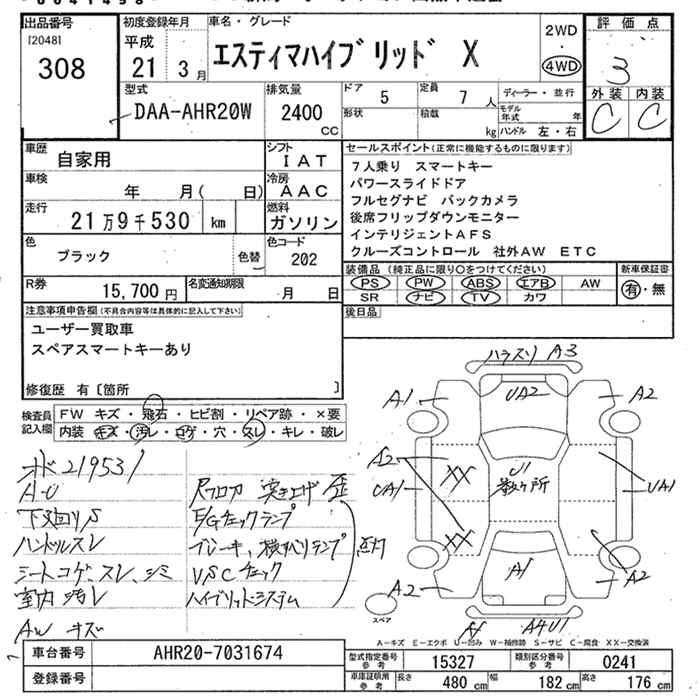 出品番号
I20481
308
初度登録年月
平成
21 3月
車名・グレード
エスティマハイブリッド X
2WD
・
4WD
評価点
3
外装 内装
C C
型式
DAA-AHR20W
排気量
2400
CC
ドア 5
定員 7人
形状
積載 kg
ディーラー・並行
モデル年式 年
ハンドル 左・右
車歴
自家用
シフト
IAT
車検
年 月( 日)
冷房
AAC
走行
21万9千530 km
燃料
ガソリン
色
ブラック
色替
色コード
202
R券
15,700円
名変通知期限
月 日
セールスポイント(正常に機能するものに限ります)
7人乗り スマートキー
パワースライドドア
フルセグナビ バックカメラ
後席フリップダウンモニター
インテリジェントAFS
クルーズコントロール 社外AW ETC
装備品(純正品に限り○をつけてください)
PS PW ABS エアB AW
SR ナビ TV カワ
新車保証書
有・無
後日品
注意事項申告欄(不具合内容等は具体的に記入して下さい)
ユーザー買取車
スペアスマートキーあり
修復歴 有〔箇所 〕
検査員
記入欄
FW キズ・飛石・ヒビ割・リペア跡・×要
内装・キズ・汚レ・コゲ・穴・スレ・キレ・破レ
219531
A-U
下廻りS
ハンドルスレ
シートコゲ、スレ、シミ
室内汚レ
AW キズ
突き上げ 歪
E/Gチェックランプ
ブレーキ、横スベリランプ
VSCチェック
ハイブリットシステム
点灯
A3
A1
UA2
A2
A2
XX
U1
数ヶ所
UA1
UA1
XX
A1
A2
A2
スペア
A4U1
A-キズ E-エクボ U-凹み W-補修跡 S-サビ C-腐食 XX-交換済
車台番号
AHR20-7031674
登録番号
型式指定番号
参考
15327
類別区分番号
参考
0241
車庫証明用
参考
長さ 480cm
幅 182cm
高さ 176cm